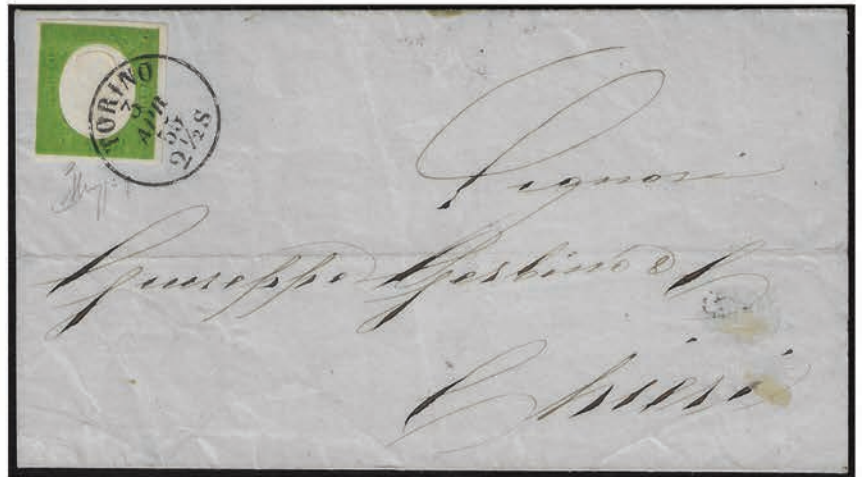 TORINO
3
APR
55
2½S
Signori
Giuseppe Gerbino e C
Chieri